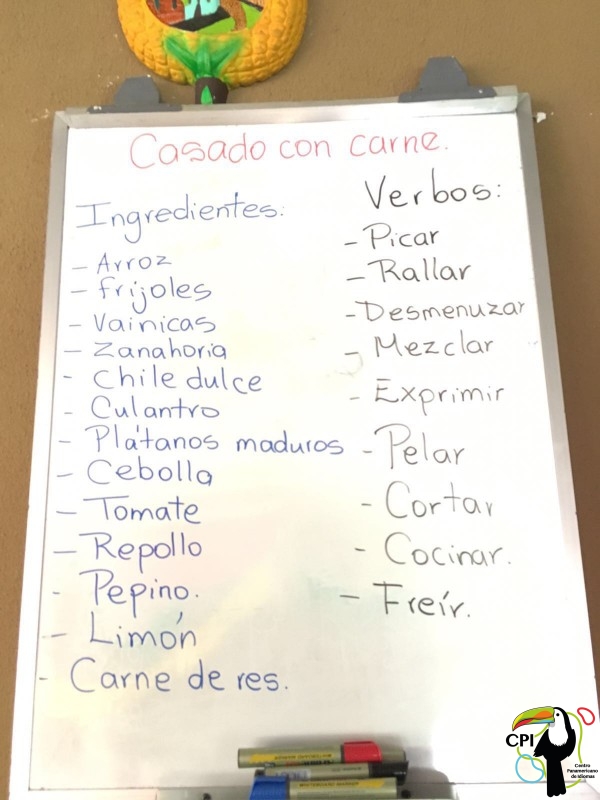 Casado con carne.
Ingredientes:
- Arroz
- frijoles
- Vainicas
- Zanahoria
- Chile dulce
- Culantro
- Plátanos maduros
- Cebolla
- Tomate
- Repollo
- Pepino.
- Limón
- Carne de res.
Verbos:
- Picar
- Rallar
- Desmenuzar
- Mezclar
- Exprimir
- Pelar
- Cortar
- Cocinar.
- Freír.
CPI
Centro
Panamericano
de Idiomas